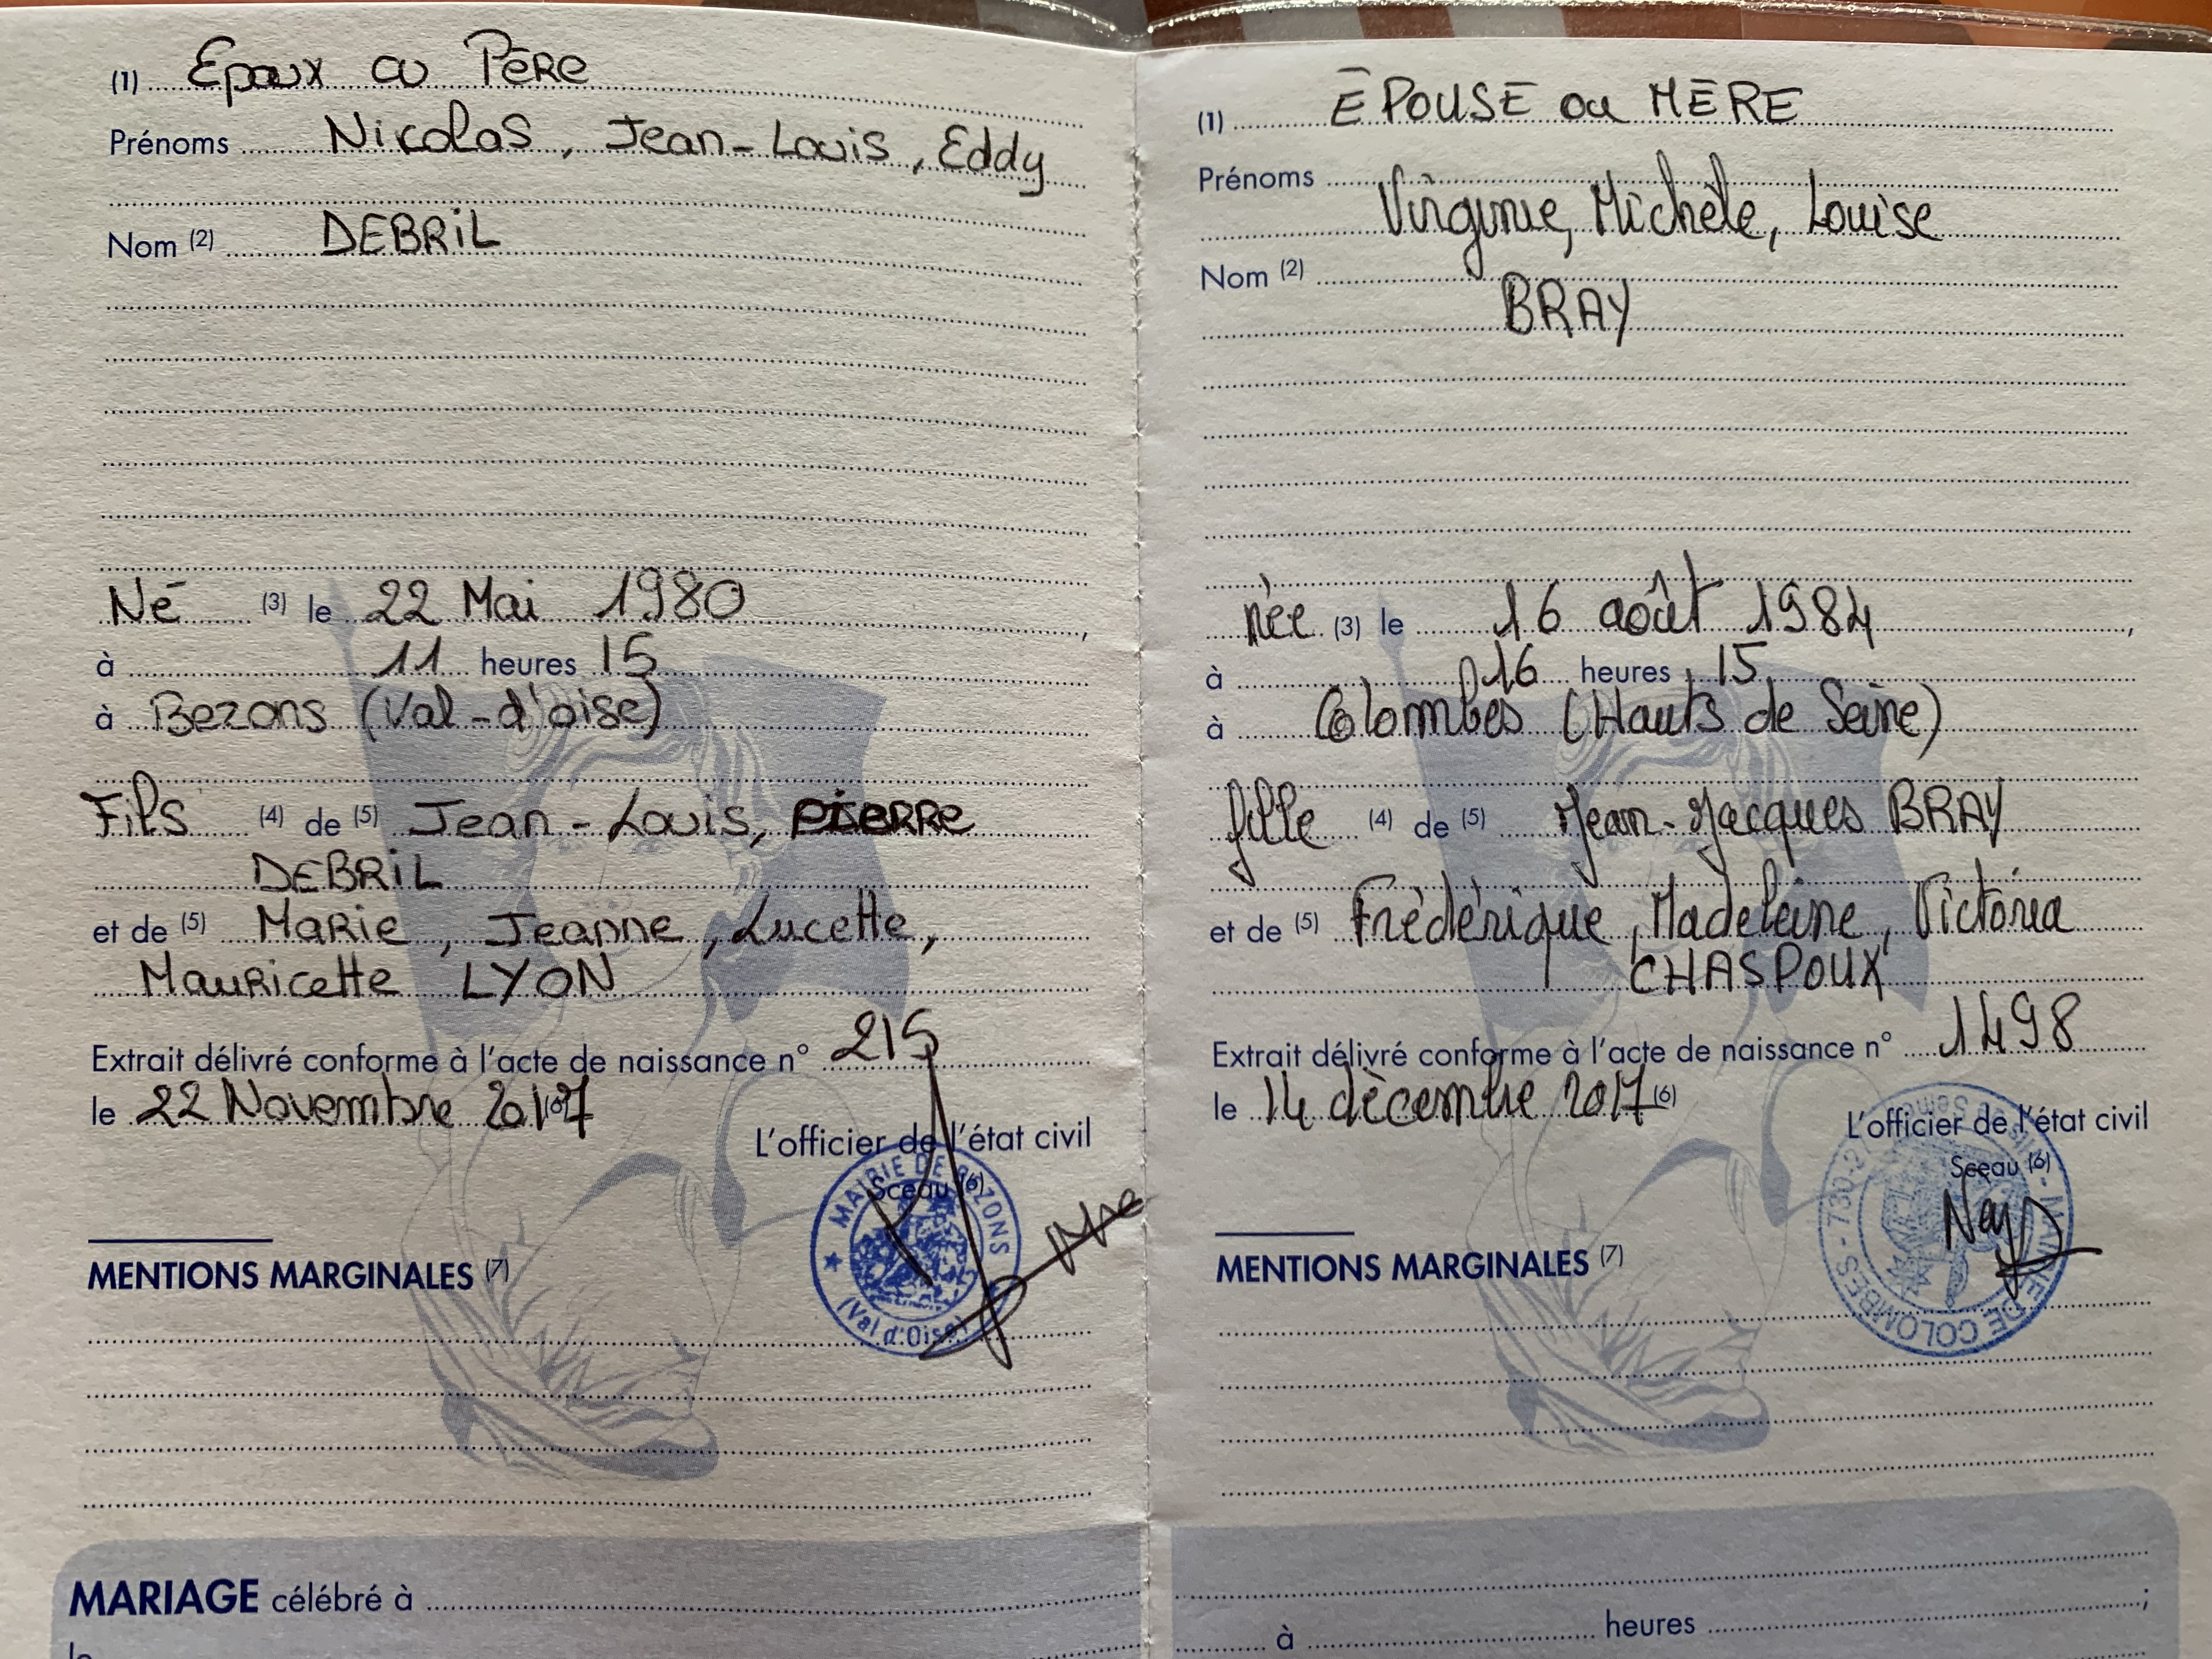 (1) Epoux ou Père
Prénoms Nicolas, Jean-Louis, Eddy
Nom (2) DEBRiL
Né (3) le 22 Mai 1980,
à 11 heures 15
à Bezons (Val-d'oise)
Fils (4) de (5) Jean-Louis, pierre
DEBRiL
et de (5) Marie, Jeanne, Lucette,
Mauricette LYON
Extrait délivré conforme à l'acte de naissance n° 215
le 22 Novembre 2017 (6)
L'officier de l'état civil
Sceau (6)
MAIRIE DE BEZONS
(Val d'Oise)
MENTIONS MARGINALES (7)
MARIAGE célébré à
le
(1) ÉPOUSE ou MÈRE
Prénoms
Virginie, Michèle, Louise
Nom (2)
BRAY
née (3) le 16 août 1984,
à 16 heures 15
à Colombes (Hauts de Seine)
fille (4) de (5) Jean-Jacques BRAY
et de (5) Frédérique, Madeleine, Victoria
CHASPOUX
Extrait délivré conforme à l'acte de naissance n° 1498
le 14 décembre 2017 (6)
L'officier de l'état civil
Sceau (6)
MAIRIE DE COLOMBES
MENTIONS MARGINALES (7)
;
à heures